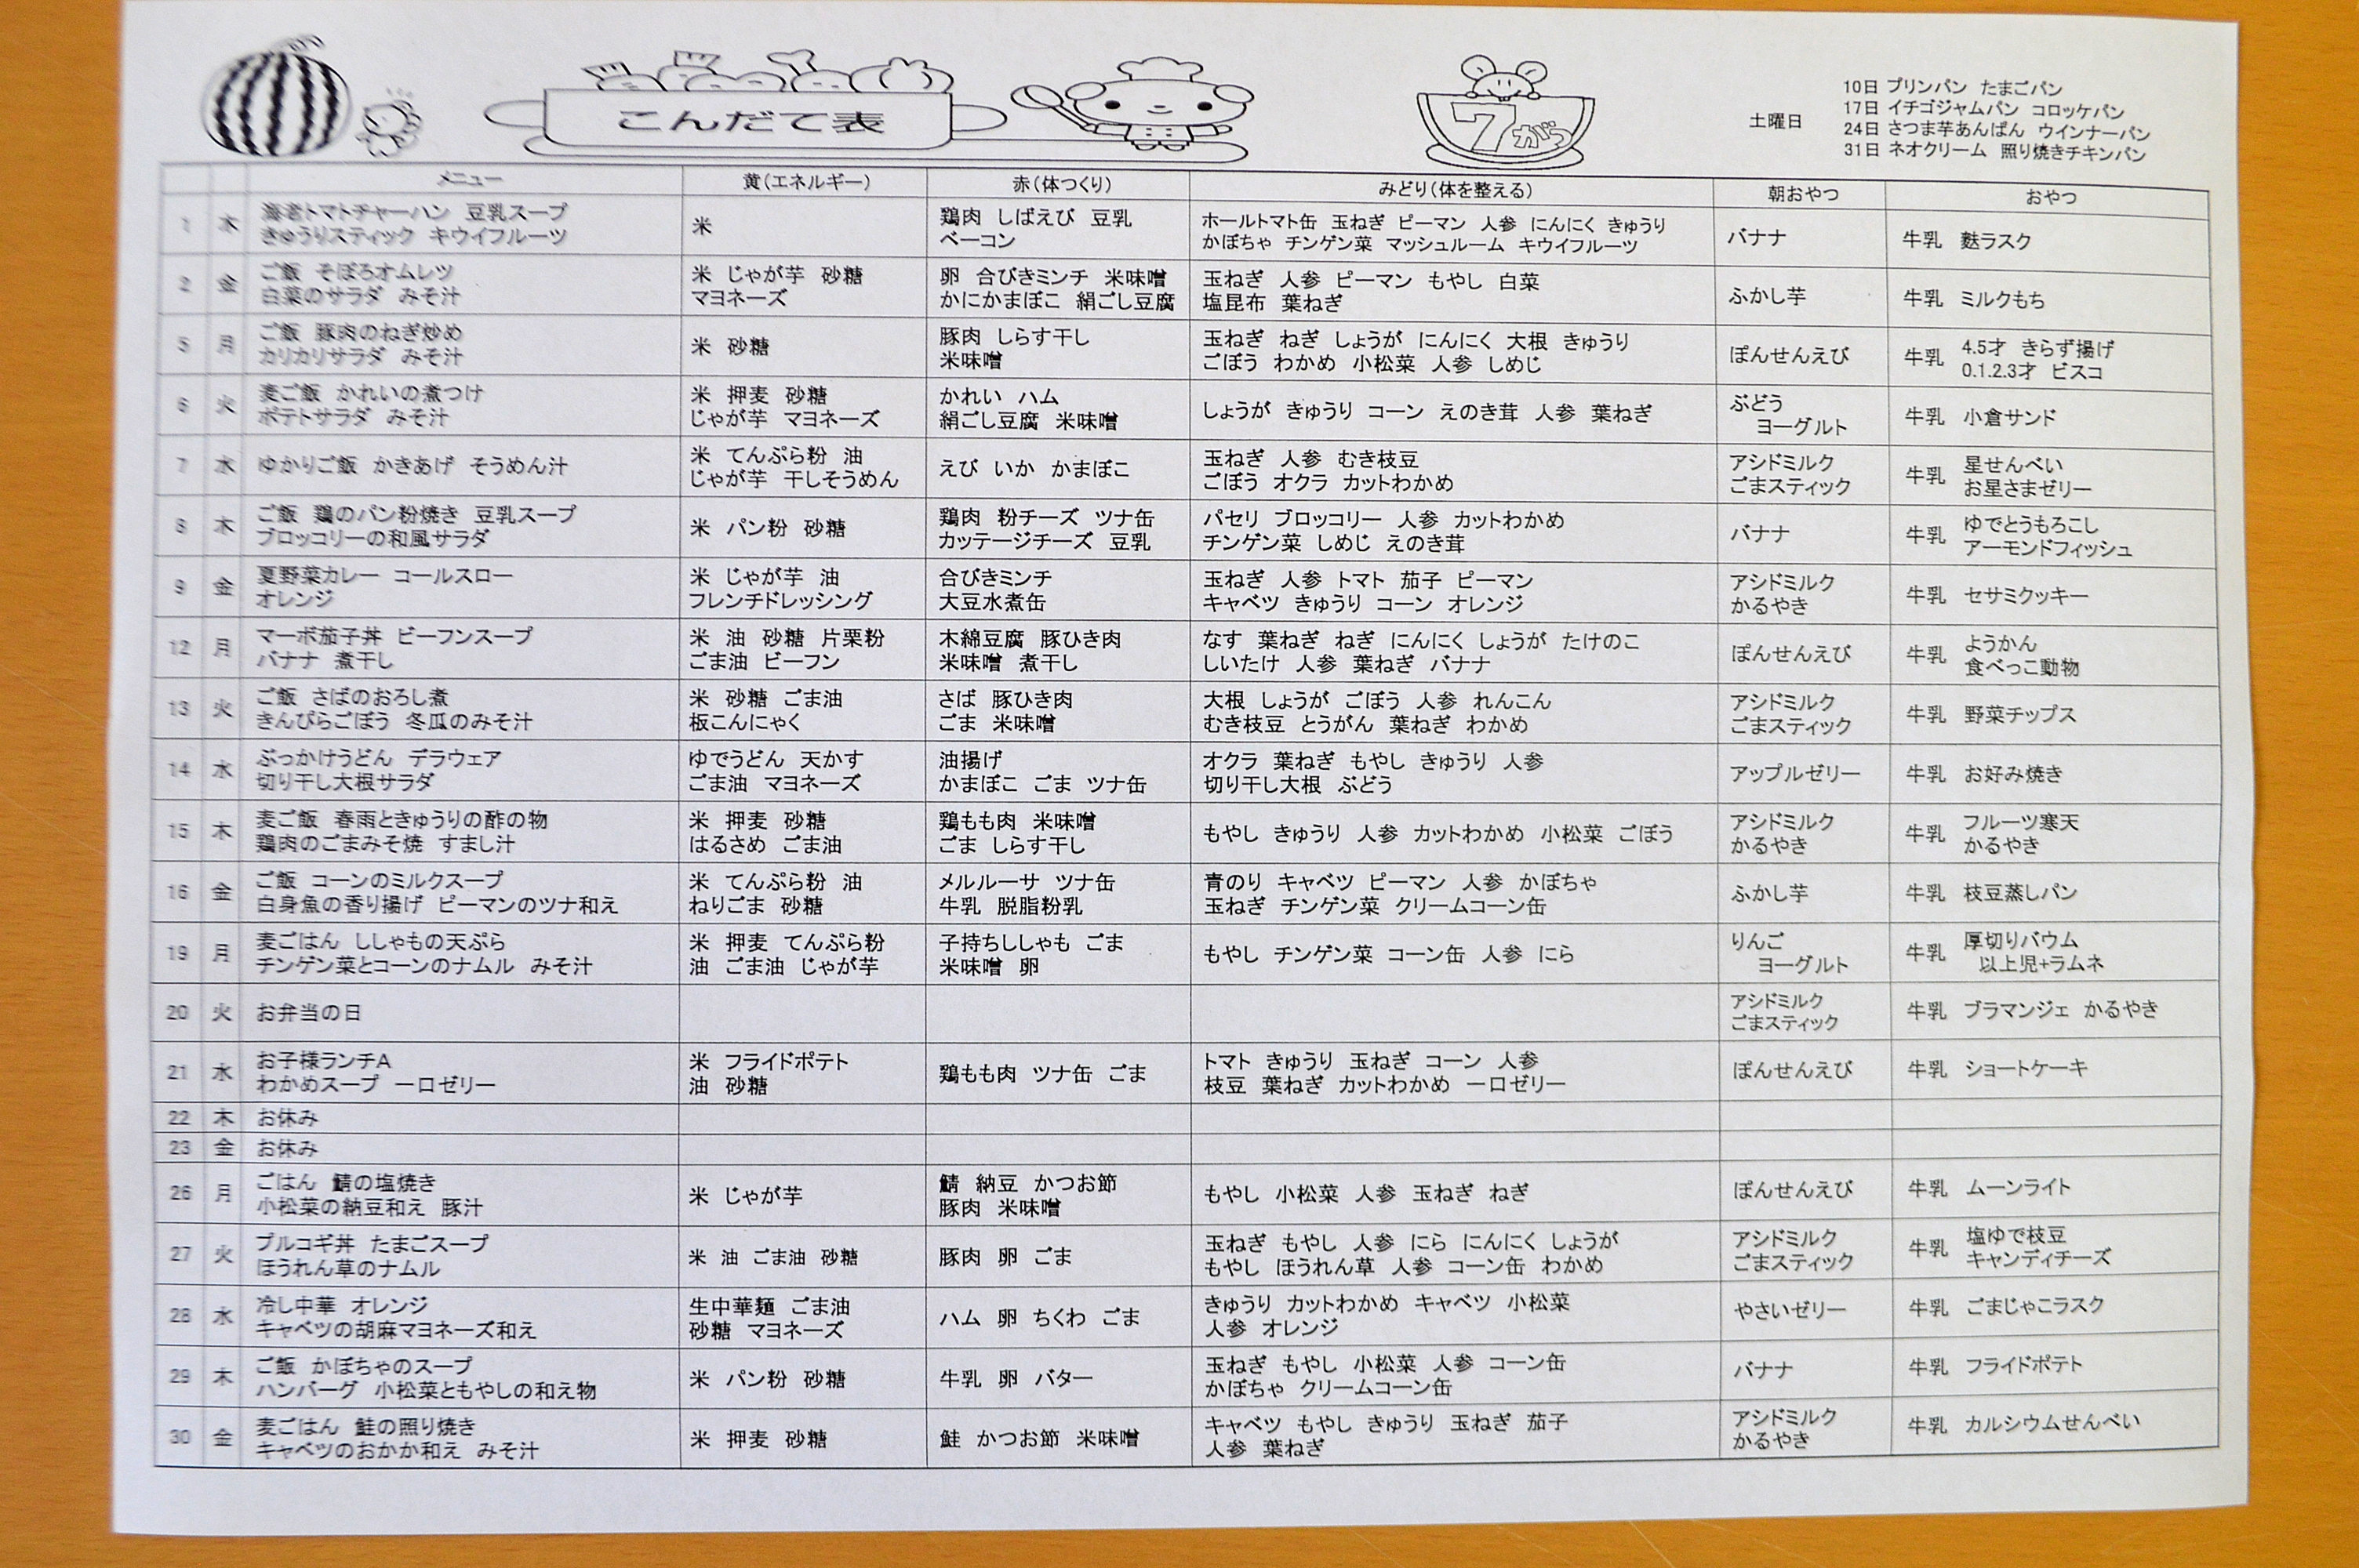 こんだて表
7がつ
土曜日
10日 プリンパン たまごパン
17日 イチゴジャムパン コロッケパン
24日 さつま芋あんぱん ウインナーパン
31日 ネオクリーム 照り焼きチキンパン
メニュー 黄(エネルギー) 赤(体つくり) みどり(体を整える) 朝おやつ おやつ
1 木 海老トマトチャーハン 豆乳スープ
きゅうりスティック キウイフルーツ
米
鶏肉 しばえび 豆乳
ベーコン
ホールトマト缶 玉ねぎ ピーマン 人参 にんにく きゅうり
かぼちゃ チンゲン菜 マッシュルーム キウイフルーツ
バナナ
牛乳 麩ラスク
2 金 ご飯 そぼろオムレツ
白菜のサラダ みそ汁
米 じゃが芋 砂糖
マヨネーズ
卵 合びきミンチ 米味噌
かにかまぼこ 絹ごし豆腐
玉ねぎ 人参 ピーマン もやし 白菜
塩昆布 葉ねぎ
ふかし芋
牛乳 ミルクもち
5 月 ご飯 豚肉のねぎ炒め
カリカリサラダ みそ汁
米 砂糖
豚肉 しらす干し
米味噌
玉ねぎ ねぎ しょうが にんにく 大根 きゅうり
ごぼう わかめ 小松菜 人参 しめじ
ぽんせんえび
牛乳 4.5才 きらず揚げ
0.1.2.3才 ビスコ
6 火 麦ご飯 かれいの煮つけ
ポテトサラダ みそ汁
米 押麦 砂糖
じゃが芋 マヨネーズ
かれい ハム
絹ごし豆腐 米味噌
しょうが きゅうり コーン えのき茸 人参 葉ねぎ
ぶどう
ヨーグルト
牛乳 小倉サンド
7 水 ゆかりご飯 かきあげ そうめん汁
米 てんぷら粉 油
じゃが芋 干しそうめん
えび いか かまぼこ
玉ねぎ 人参 むき枝豆
ごぼう オクラ カットわかめ
アシドミルク
ごまスティック
牛乳 星せんべい
お星さまゼリー
8 木 ご飯 鶏のパン粉焼き 豆乳スープ
ブロッコリーの和風サラダ
米 パン粉 砂糖
鶏肉 粉チーズ ツナ缶
カッテージチーズ 豆乳
パセリ ブロッコリー 人参 カットわかめ
チンゲン菜 しめじ えのき茸
バナナ
牛乳 ゆでとうもろこし
アーモンドフィッシュ
9 金 夏野菜カレー コールスロー
オレンジ
米 じゃが芋 油
フレンチドレッシング
合びきミンチ
大豆水煮缶
玉ねぎ 人参 トマト 茄子 ピーマン
キャベツ きゅうり コーン オレンジ
アシドミルク
かるやき
牛乳 セサミクッキー
12 月 マーボ茄子丼 ビーフンスープ
バナナ 煮干し
米 油 砂糖 片栗粉
ごま油 ビーフン
木綿豆腐 豚ひき肉
米味噌 煮干し
なす 葉ねぎ ねぎ にんにく しょうが たけのこ
しいたけ 人参 葉ねぎ バナナ
ぽんせんえび
牛乳 ようかん
食べっこ動物
13 火 ご飯 さばのおろし煮
きんぴらごぼう 冬瓜のみそ汁
米 砂糖 ごま油
板こんにゃく
さば 豚ひき肉
ごま 米味噌
大根 しょうが ごぼう 人参 れんこん
むき枝豆 とうがん 葉ねぎ わかめ
アシドミルク
ごまスティック
牛乳 野菜チップス
14 水 ぶっかけうどん デラウェア
切り干し大根サラダ
ゆでうどん 天かす
ごま油 マヨネーズ
油揚げ
かまぼこ ごま ツナ缶
オクラ 葉ねぎ もやし きゅうり 人参
切り干し大根 ぶどう
アップルゼリー
牛乳 お好み焼き
15 木 麦ご飯 春雨ときゅうりの酢の物
鶏肉のごまみそ焼 すまし汁
米 押麦 砂糖
はるさめ ごま油
鶏もも肉 米味噌
ごま しらす干し
もやし きゅうり 人参 カットわかめ 小松菜 ごぼう
アシドミルク
かるやき
牛乳 フルーツ寒天
かるやき
16 金 ご飯 コーンのミルクスープ
白身魚の香り揚げ ピーマンのツナ和え
米 てんぷら粉 油
ねりごま 砂糖
メルルーサ ツナ缶
牛乳 脱脂粉乳
青のり キャベツ ピーマン 人参 かぼちゃ
玉ねぎ チンゲン菜 クリームコーン缶
ふかし芋
牛乳 枝豆蒸しパン
19 月 麦ごはん ししゃもの天ぷら
チンゲン菜とコーンのナムル みそ汁
米 押麦 てんぷら粉
油 ごま油 じゃが芋
子持ちししゃも ごま
米味噌 卵
もやし チンゲン菜 コーン缶 人参 にら
りんご
ヨーグルト
牛乳 厚切りバウム
以上児+ラムネ
20 火 お弁当の日
アシドミルク
ごまスティック
牛乳 ブラマンジェ かるやき
21 水 お子様ランチA
わかめスープ 一口ゼリー
米 フライドポテト
油 砂糖
鶏もも肉 ツナ缶 ごま
トマト きゅうり 玉ねぎ コーン 人参
枝豆 葉ねぎ カットわかめ 一口ゼリー
ぽんせんえび
牛乳 ショートケーキ
22 木 お休み
23 金 お休み
26 月 ごはん 鯖の塩焼き
小松菜の納豆和え 豚汁
米 じゃが芋
鯖 納豆 かつお節
豚肉 米味噌
もやし 小松菜 人参 玉ねぎ ねぎ
ぽんせんえび
牛乳 ムーンライト
27 火 プルコギ丼 たまごスープ
ほうれん草のナムル
米 油 ごま油 砂糖
豚肉 卵 ごま
玉ねぎ もやし 人参 にら にんにく しょうが
もやし ほうれん草 人参 コーン缶 わかめ
アシドミルク
ごまスティック
牛乳 塩ゆで枝豆
キャンディチーズ
28 水 冷し中華 オレンジ
キャベツの胡麻マヨネーズ和え
生中華麺 ごま油
砂糖 マヨネーズ
ハム 卵 ちくわ ごま
きゅうり カットわかめ キャベツ 小松菜
人参 オレンジ
やさいゼリー
牛乳 ごまじゃこラスク
29 木 ご飯 かぼちゃのスープ
ハンバーグ 小松菜ともやしの和え物
米 パン粉 砂糖
牛乳 卵 バター
玉ねぎ もやし 小松菜 人参 コーン缶
かぼちゃ クリームコーン缶
バナナ
牛乳 フライドポテト
30 金 麦ごはん 鮭の照り焼き
キャベツのおかか和え みそ汁
米 押麦 砂糖
鮭 かつお節 米味噌
キャベツ もやし きゅうり 玉ねぎ 茄子
人参 葉ねぎ
アシドミルク
かるやき
牛乳 カルシウムせんべい